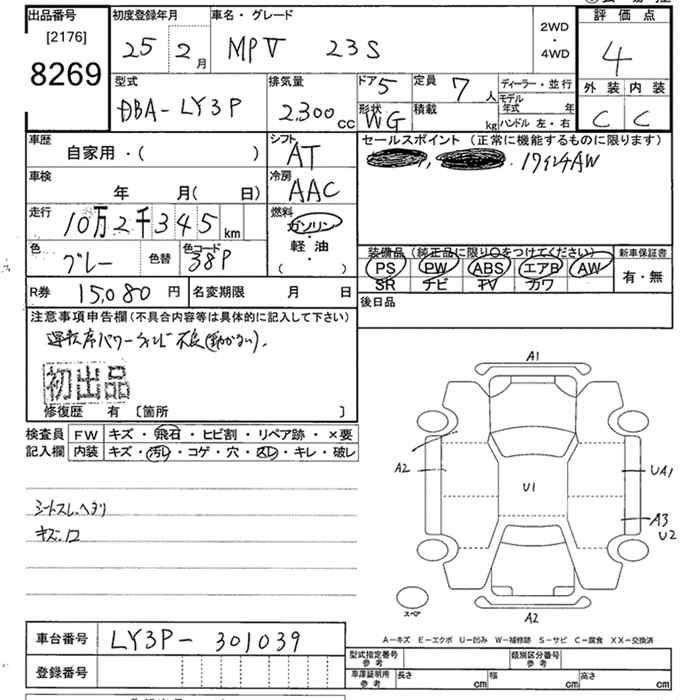 出品番号
[2176]
8269
初度登録年月
25 2 月
車名・グレード
MPV 23S
2WD
・
4WD
評価点
4
外装 内装
C C
型式
DBA-LY3P
排気量
2.300 cc
ドア 5
定員 7 人
形状 WG
積載 kg
ディーラー・並行
モデル年式 年
ハンドル 左・右
車歴
自家用・( )
シフト
AT
車検
年 月( 日)
冷房
AAC
走行
10万2千345 km
燃料
ガソリン・
軽油
( )
色
グレー
色替
色コード
38P
セールスポイント (正常に機能するものに限ります)
17インチAW
装備品 (純正品に限り○をつけてください)
PS PW ABS エアB AW
SR ナビ TV カワ
新車保証書
有・無
R券 15,080 円
名変期限 月 日
後日品
注意事項申告欄(不具合内容等は具体的に記入して下さい)
運転席パワーウィンド不良(動かない).
初出品
修復歴 有 〔箇所 〕
検査員
記入欄
FW キズ・飛石・ヒビ割・リペア跡・×要
内装 キズ・汚レ・コゲ・穴・スレ・キレ・破レ
シートスレ.ヘタリ
キズ.
A1
A2
U1
UA1
A3
U2
A2
スペア
A-キズ E-エクボ U-凹み W-補修跡 S-サビ C-腐食 XX-交換済
車台番号 LY3P-301039
登録番号
型式指定番号
参考
類別区分番号
参考
車庫証明用
参考
長さ cm 幅 cm 高さ cm